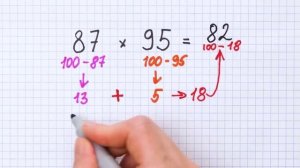 87 × 95 = 82
100-87 100-95 100-18
↓ ↓
13 + 5 → 18